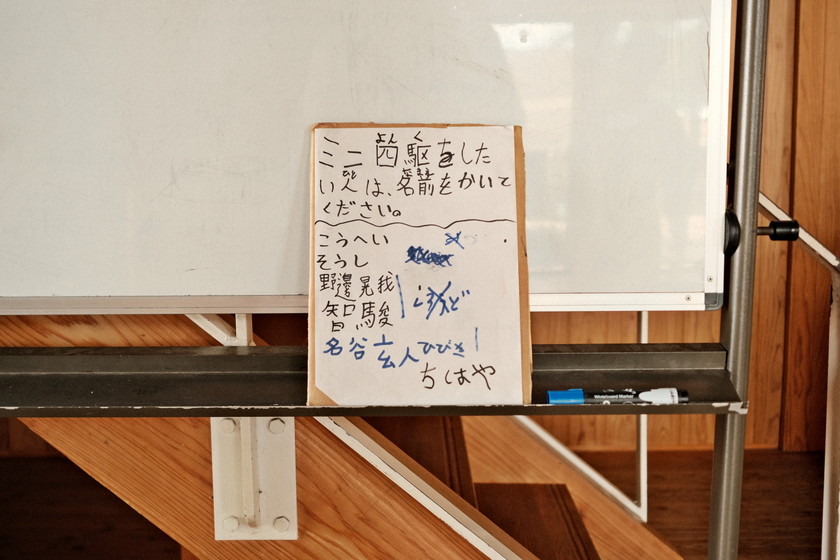 ミニ四駆をした
い人は、名前をかいて
ください。
こうへい
そうし
野邊晃我
智駿
名谷玄人 ひびき
ちはや
Whiteboard Marker